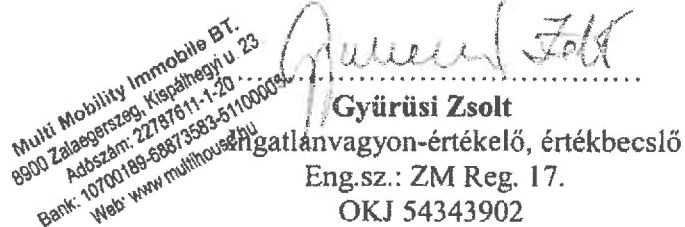 Multi Mobility Immobile BT.
8900 Zalaegerszeg, Kispálhegyi u. 23
Adószám: 22787611-1-20
Bank: 10700189-68873583-51100005
Web: www.multihouse.hu
Gyürüsi Zsolt
ingatlanvagyon-értékelő, értékbecslő
Eng.sz.: ZM Reg. 17.
OKJ 54343902